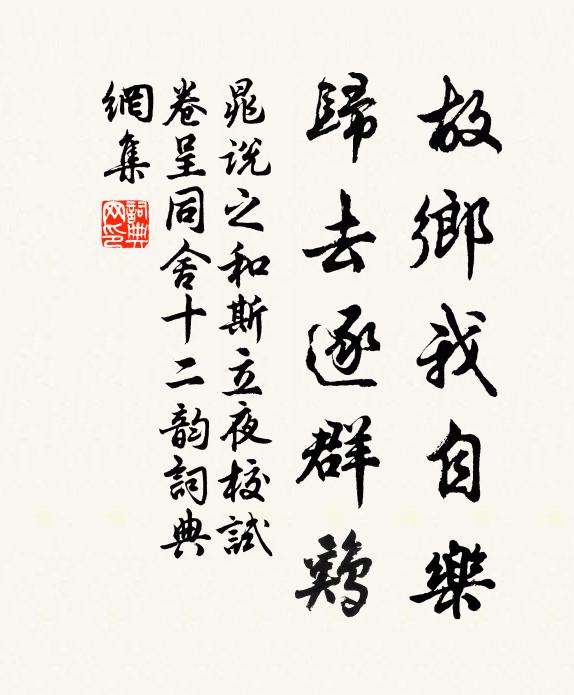 故鄉我自樂
歸去逐群鷄
晁説之和斯立夜校試
卷呈同舍十二韵詞典
網集
詞典
网印